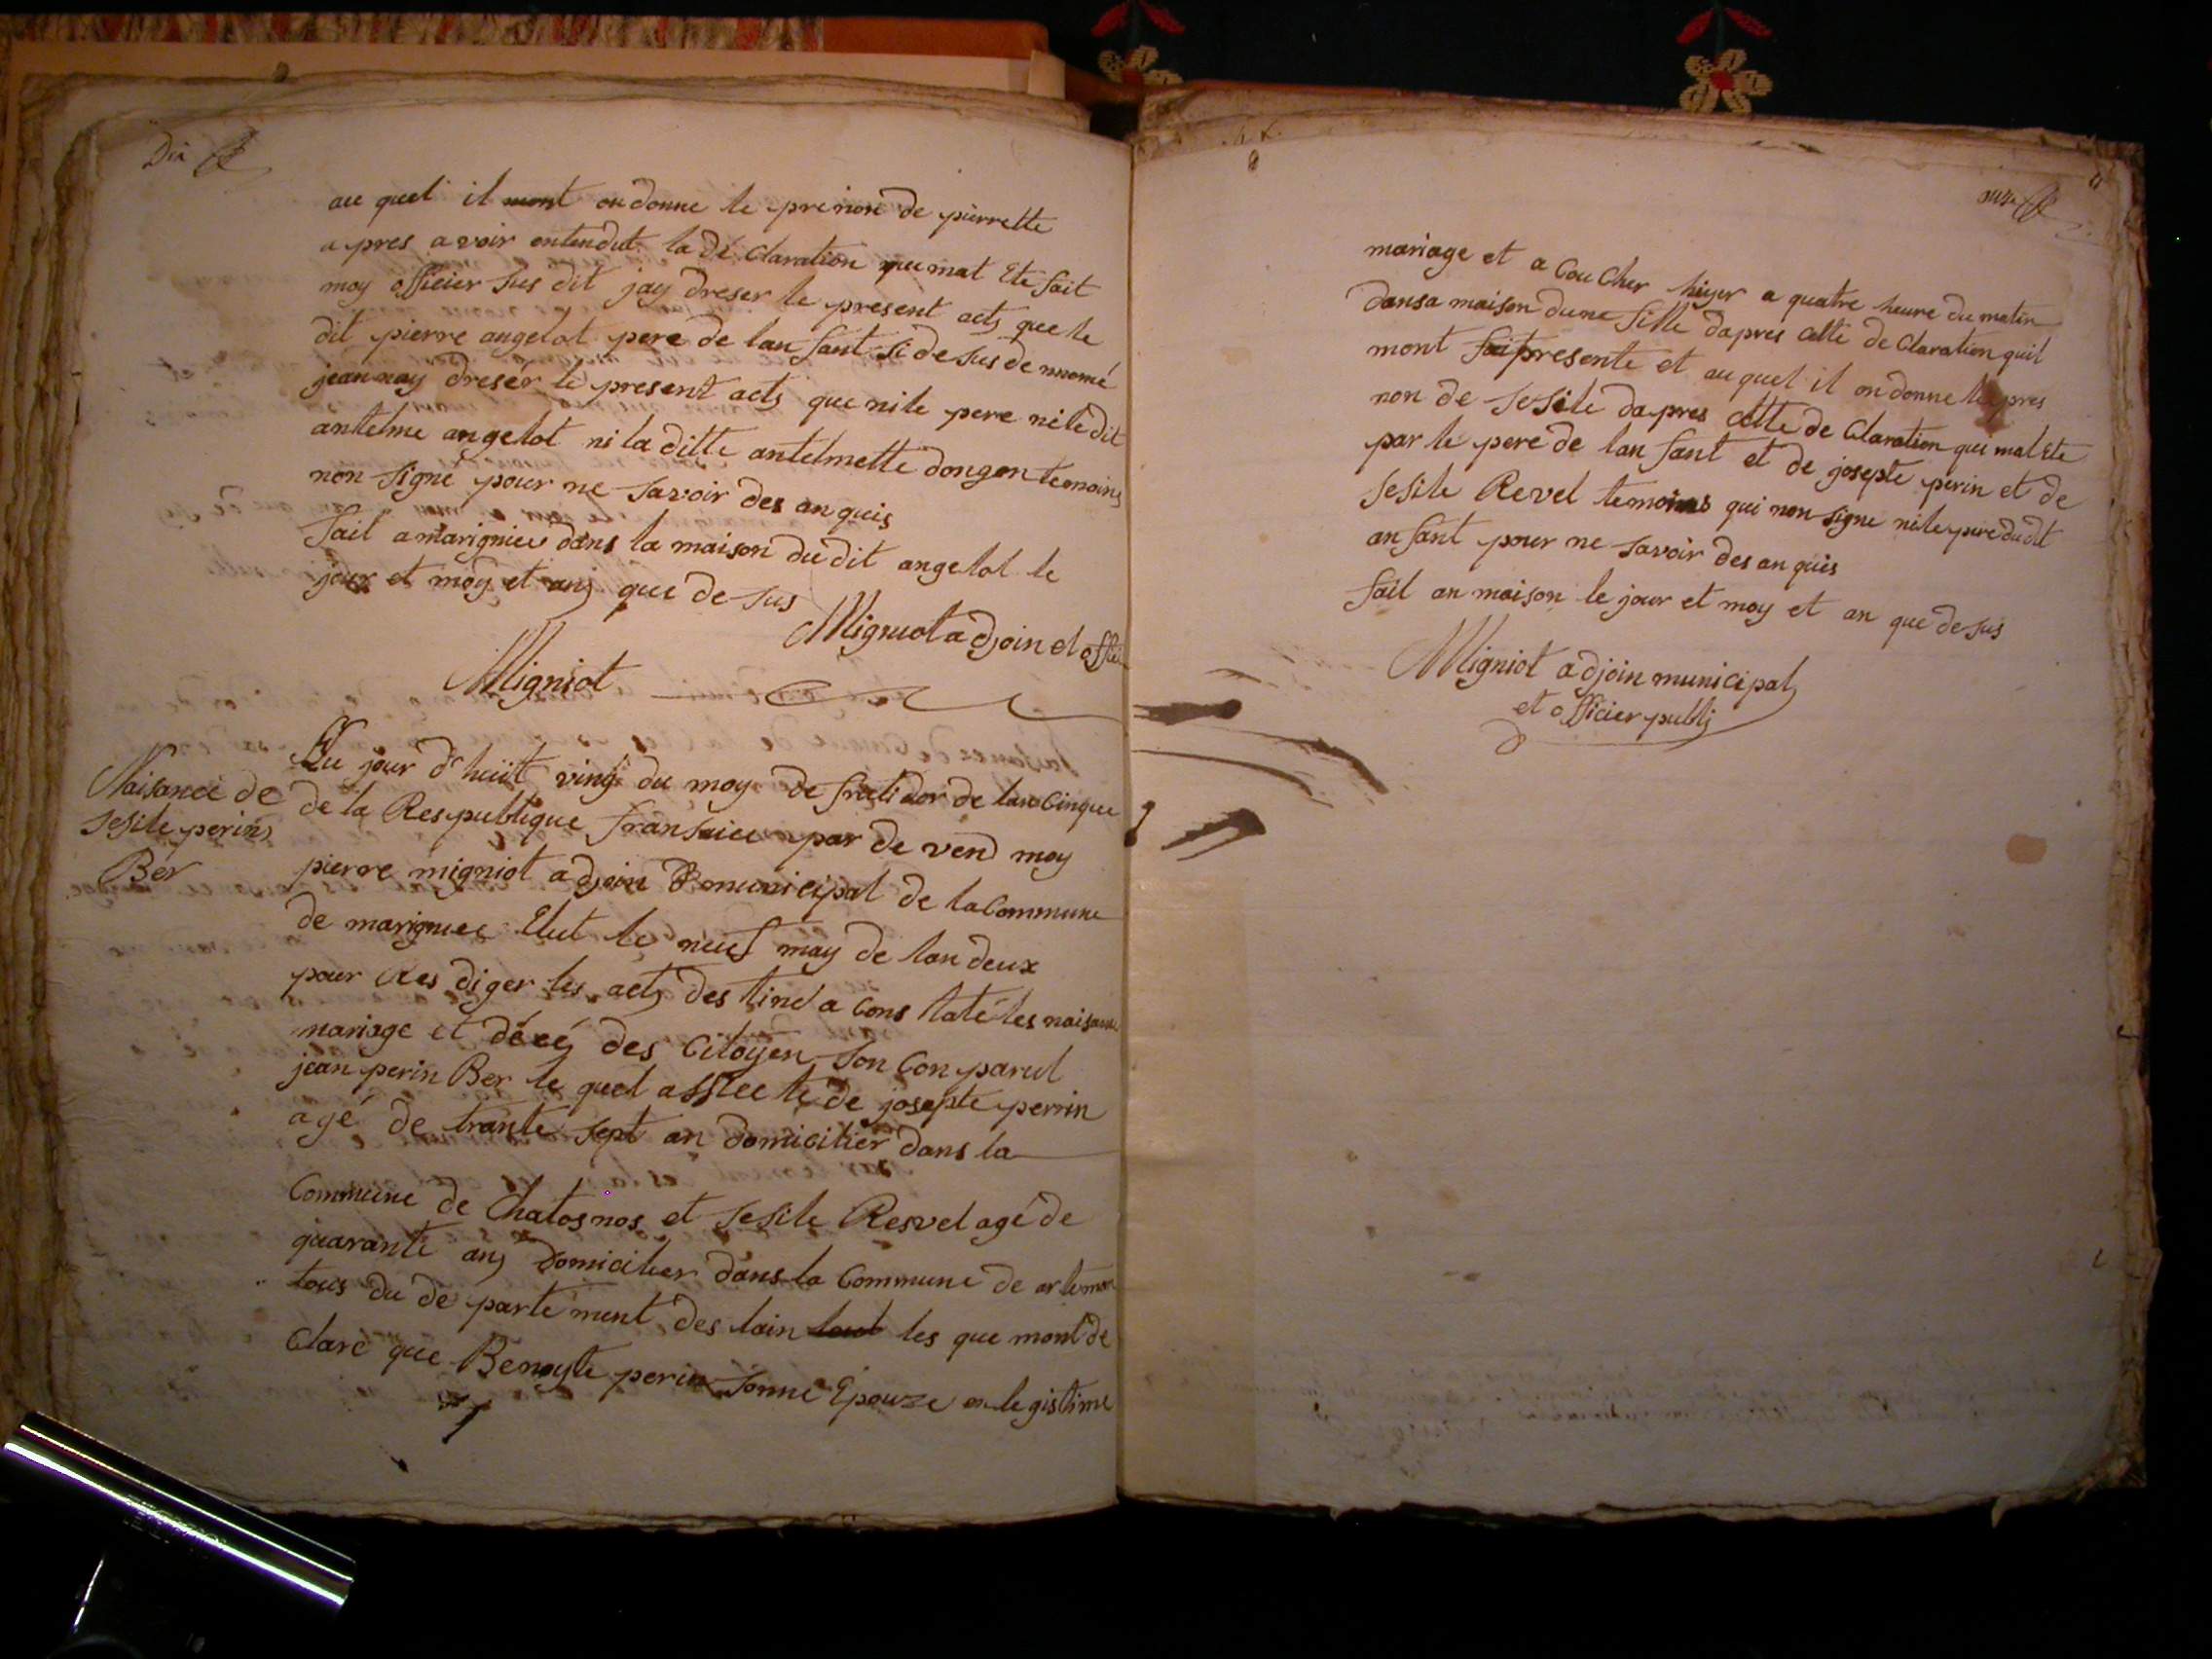 Dix
au quel il mont on donne le prenon de pierrette
apres avoir entendut la de Claration quimat Ete fait
moy officier Sus dit jay dreser le present acts que le
dit pierre angelot pere de lan fant Si de Sus de nnomé
jeannay dresér le present acts que ni le pere ni le dit
antelme angelot ni la ditte antelmette dongon temoins
non Signé pour ne Savoir des an quis
Fait a marigniee dans la maison du dit angelot le
jour et moy et ans que de Sus
Migniot adjoin et offici
Migniot
Naisance de
Sesile perin
Ber
Au jour d'huit vingt du moy de frutidor de lan Cinque
de la Respublique fransaiee par de vend moy
pierre migniot adjoin municipal de la Commune
de marigniee Elut le neuf may de lan deux
pour Res diger les acts des tiné a Cons taté les naisance
mariage et décés des Citoyen Son Con parut
jean perin Ber le quel assiee té de josepte perrin
agé de trante Sept an domicilier dans la
Commune de Chatosnos et Sesile Resvel agé de
quarante ans domicilier dans la Commune de artemar
tous du de parte ment des lain tout les que mont de
Claré que Benoyte perin Sonne Epouze en legistime
onze
mariage et a Cou Cher hiyer a quatre heure du matin
dansa maison dune fille dapres Cette de Claration quil
mont fait presente et au quel il on donne le pres
non de Sesile dapres Cette de Claration qui mat Ete
par le pere de lan fant et de josepte perin et de
Sesile Revel temoins qui non Signe ni le pere du dit
an fant pour ne Savoir des an quis
fait an maison le jour et moy et an que de Sus
Migniot adjoin municipal
et officier publi